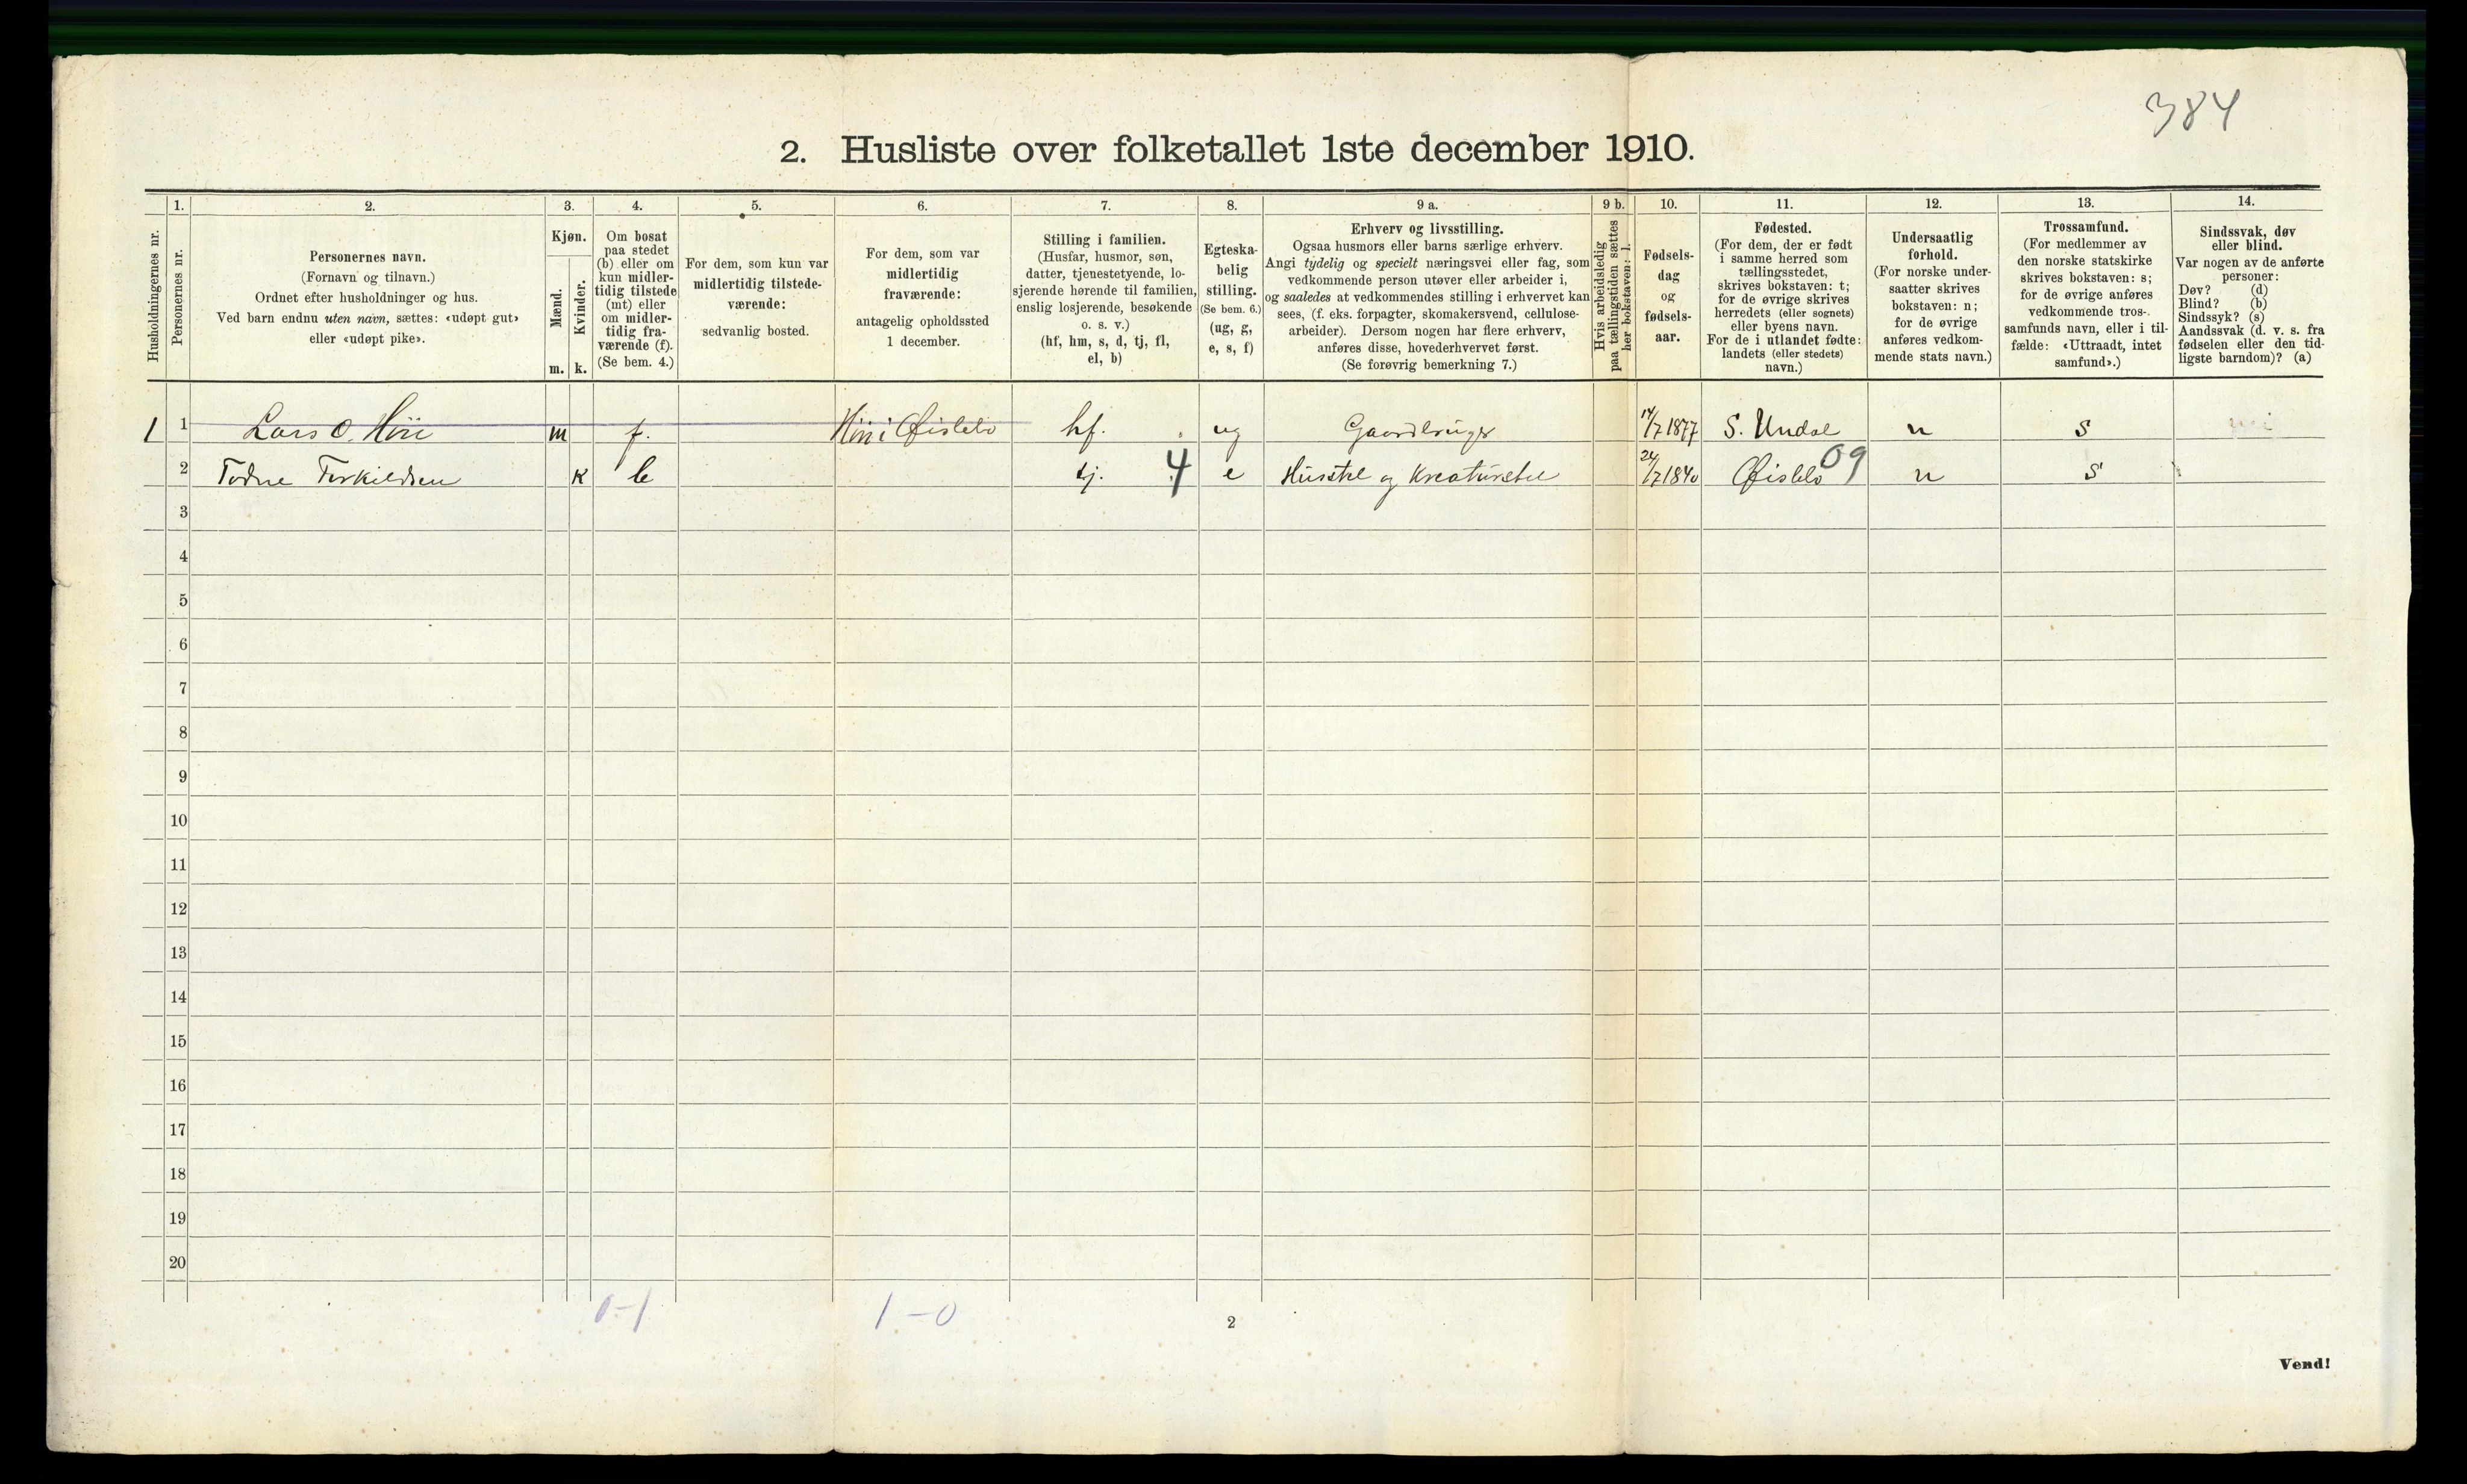 384
2. Husliste over folketallet 1ste december 1910.
Husholdningernes nr.
1.
Personernes nr.
2.
Personernes navn.
(Fornavn og tilnavn.)
Ordnet efter husholdninger og hus.
Ved barn endnu uten navn, sættes: «udøpt gut»
eller «udøpt pike».
3.
Kjøn.
Mænd.
Kvinder.
m. k.
4.
Om bosat
paa stedet
(b) eller om
kun midler-
tidig tilstede
(mt) eller
om midler-
tidig fra-
værende (f).
(Se bem. 4.)
5.
For dem, som kun var
midlertidig tilstede-
værende:
sedvanlig bosted.
6.
For dem, som var
midlertidig
fraværende:
antagelig opholdssted
1 december.
7.
Stilling i familien.
(Husfar, husmor, søn,
datter, tjenestetyende, lo-
sjerende hørende til familien,
enslig losjerende, besøkende
o. s. v.)
(hf, hm, s, d, tj, fl,
el, b)
8.
Egteska-
belig
stilling.
(Se bem. 6.)
(ug, g,
e, s, f)
9 a.
Erhverv og livsstilling.
Ogsaa husmors eller barns særlige erhverv.
Angi tydelig og specielt næringsvei eller fag, som
vedkommende person utøver eller arbeider i,
og saaledes at vedkommendes stilling i erhvervet kan
sees, (f. eks. forpagter, skomakersvend, cellulose-
arbeider). Dersom nogen har flere erhverv,
anføres disse, hovederhvervet først.
(Se forøvrig bemerkning 7.)
9 b.
Hvis arbeidsledig
paa tællingstiden sættes
her bokstaven: l.
10.
Fødsels-
dag
og
fødsels-
aar.
11.
Fødested.
(For dem, der er født
i samme herred som
tællingsstedet,
skrives bokstaven: t;
for de øvrige skrives
herredets (eller sognets)
eller byens navn.
For de i utlandet fødte:
landets (eller stedets)
navn.)
12.
Undersaatlig
forhold.
(For norske under-
saatter skrives
bokstaven: n;
for de øvrige
anføres vedkom-
mende stats navn.)
13.
Trossamfund.
(For medlemmer av
den norske statskirke
skrives bokstaven: s;
for de øvrige anføres
vedkommende tros-
samfunds navn, eller i til-
fælde: «Uttraadt, intet
samfund».)
14.
Sindssvak, døv
eller blind.
Var nogen av de anførte
personer:
Døv? (d)
Blind? (b)
Sindssyk? (s)
Aandssvak (d. v. s. fra
fødselen eller den tid-
ligste barndom)? (a)
1 1 Lars O. Höie m f. Höie i Øislebø hf. ug Gaardbruger 14/7 1877 S. Undal n s
2 Todne Torkildsen k b tj. 4 e Husstel og Kreaturstel 24/7 1840 Øislebø 09 n s
3
4
5
6
7
8
9
10
11
12
13
14
15
16
17
18
19
20
0-1 1-0
2
Vend!